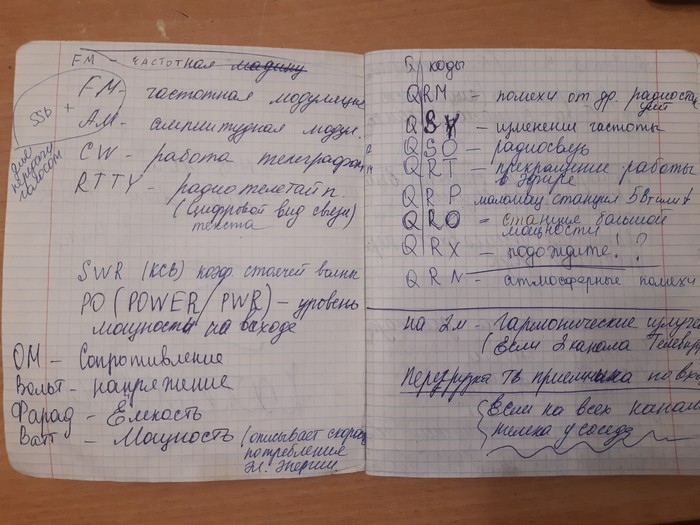 FM - частотная
SSB +
для передачи голосом
FM - частотная модуляция
AM - амплитудная модул.
CW - работа телеграфом
RTTY - радиотелетайп.
(цифровой вид связи)
текста
SWR (КСВ) коэф стоячей волны
PO (POWER/PWR) - уровень
мощности на выходе
ОМ - Сопротивление
Вольт - напряжение
Фарад - Емкость
Ватт - Мощность (описывает скорос
потребления
эл. энергии
Q коды
QRM - помехи от др. радиоста
ций
QSY - изменения частоты
QSO - радиосвязь
QRT - прекращение работы
в эфире
QRP маломощ станция 5Вт или
QRO - станция большой
мощности
QRX - подождите! ?
QRN - атмосферные помехи
на 2м - Гармонические излуче
(Если 2 канала Телевиз
Перегрузка ТВ приемника по вх
(Если на всех канал
телека у соседа